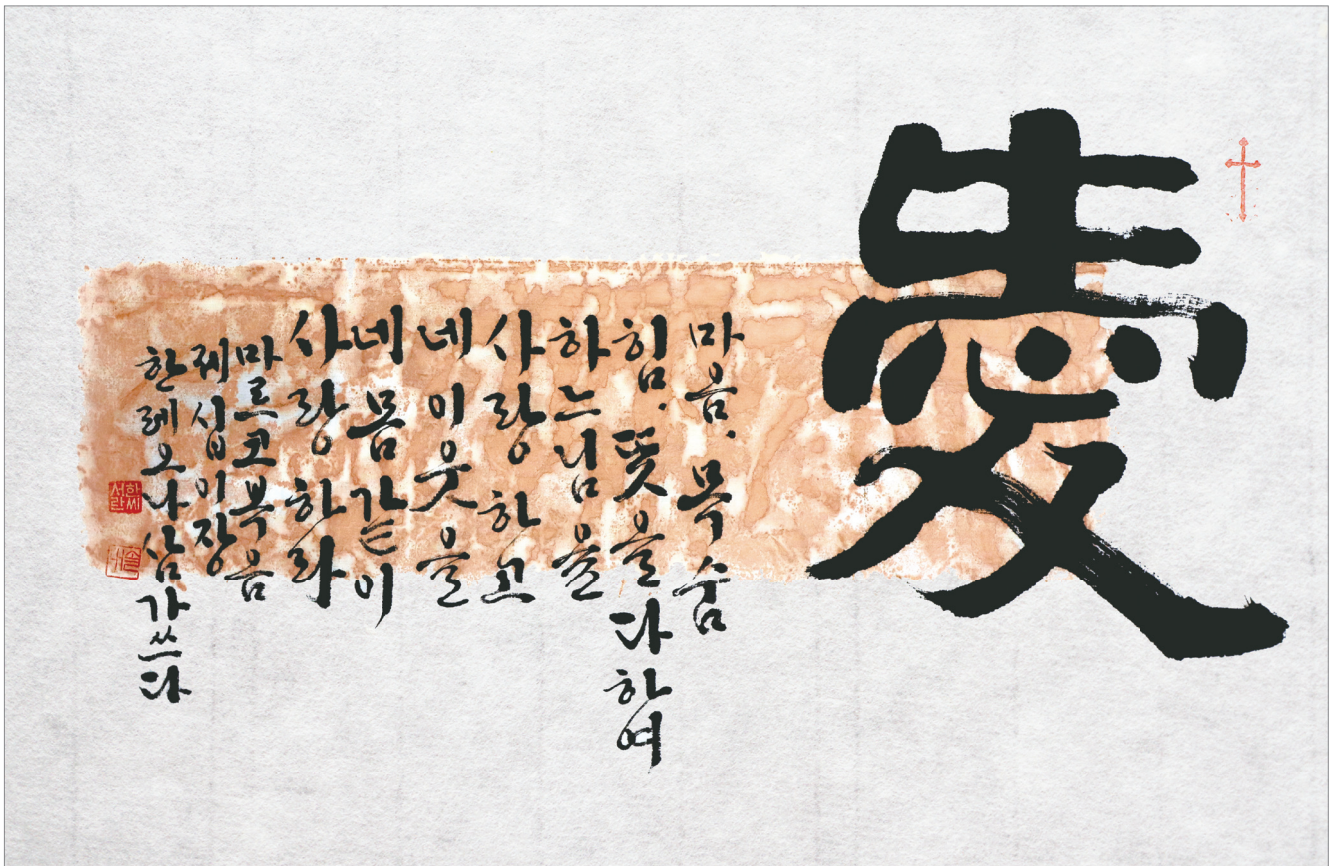 愛
마음. 목숨
힘. 뜻을 다하여
하느님을
사랑하고
네 이웃을
네 몸 같이
사랑하라
마르코복음
제십이장
한레오나 삼가 쓰다
한씨
서란